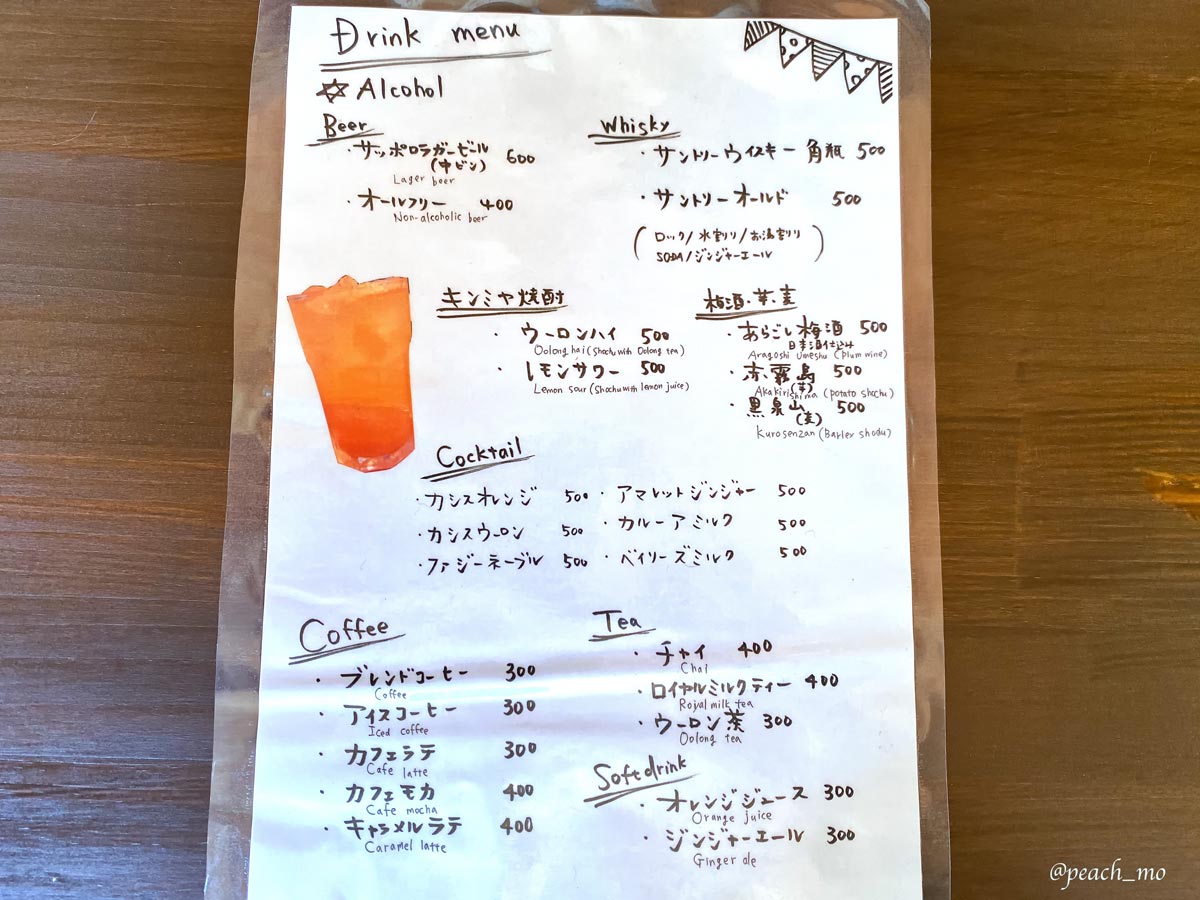 Drink menu
☆ Alcohol
Beer
・サッポロラガービール 600
(中ビン)
Lager beer
・オールフリー 400
Non-alcoholic beer
Whisky
・サントリーウイスキー 角瓶 500
・サントリーオールド 500
(ロック/水割り/お湯割り
SODA/ジンジャーエール)
キンミヤ焼酎
・ウーロンハイ 500
Oolong hai (Shochu with Oolong tea)
・レモンサワー 500
Lemon sour (Shochu with lemon juice)
梅酒・芋・麦
・あらごし梅酒 500
日本酒仕込み
Aragoshi Umeshu (plum wine)
・赤霧島 500
(芋)
Akakirishima (potato shochu)
・黒泉山 500
(麦)
Kurosenzan (Barley shochu)
Cocktail
・カシスオレンジ 500
・カシスウーロン 500
・ファジーネーブル 500
・アマレットジンジャー 500
・カルーアミルク 500
・ベイリーズミルク 500
Coffee
・ブレンドコーヒー 300
Coffee
・アイスコーヒー 300
Iced coffee
・カフェラテ 300
Cafe latte
・カフェモカ 400
Cafe mocha
・キャラメルラテ 400
Caramel latte
Tea
・チャイ 400
Chai
・ロイヤルミルクティー 400
Royal milk tea
・ウーロン茶 300
Oolong tea
Softdrink
・オレンジジュース 300
Orange juice
・ジンジャーエール 300
Ginger ale
@peach_mo